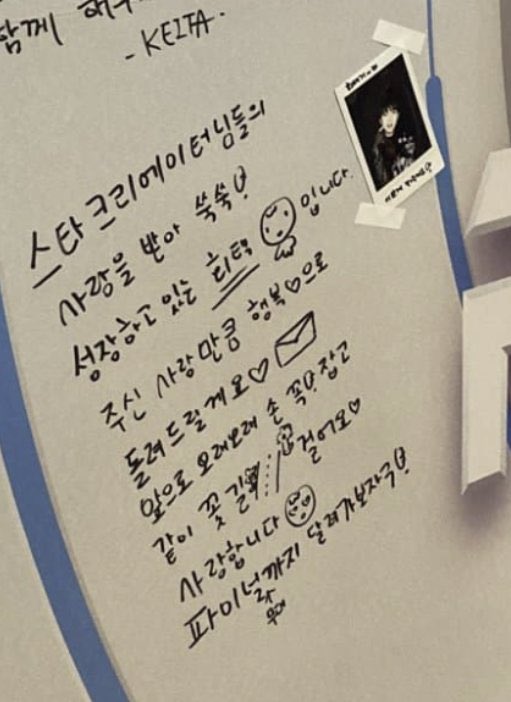 함께 해
- KEITA -
스타 크리에이터님들의
사랑을 받아 쑥쑥!
성장하고 있는 희택 입니다.
주신 사랑만큼 행복♡으로
돌려드릴게요♡
앞으로 오래오래 손 꼭! 잡고
같이 꽃길 걸어요♡
사랑합니다
파이널까지 달려가보자구!